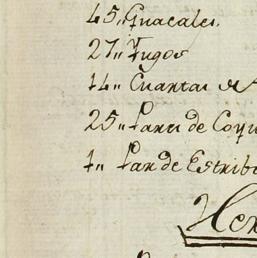 45,, Guacales.
27,, Yugos
14,, Cuartas
25,, Pares de Coyu
1,, Par de Estribo
Her